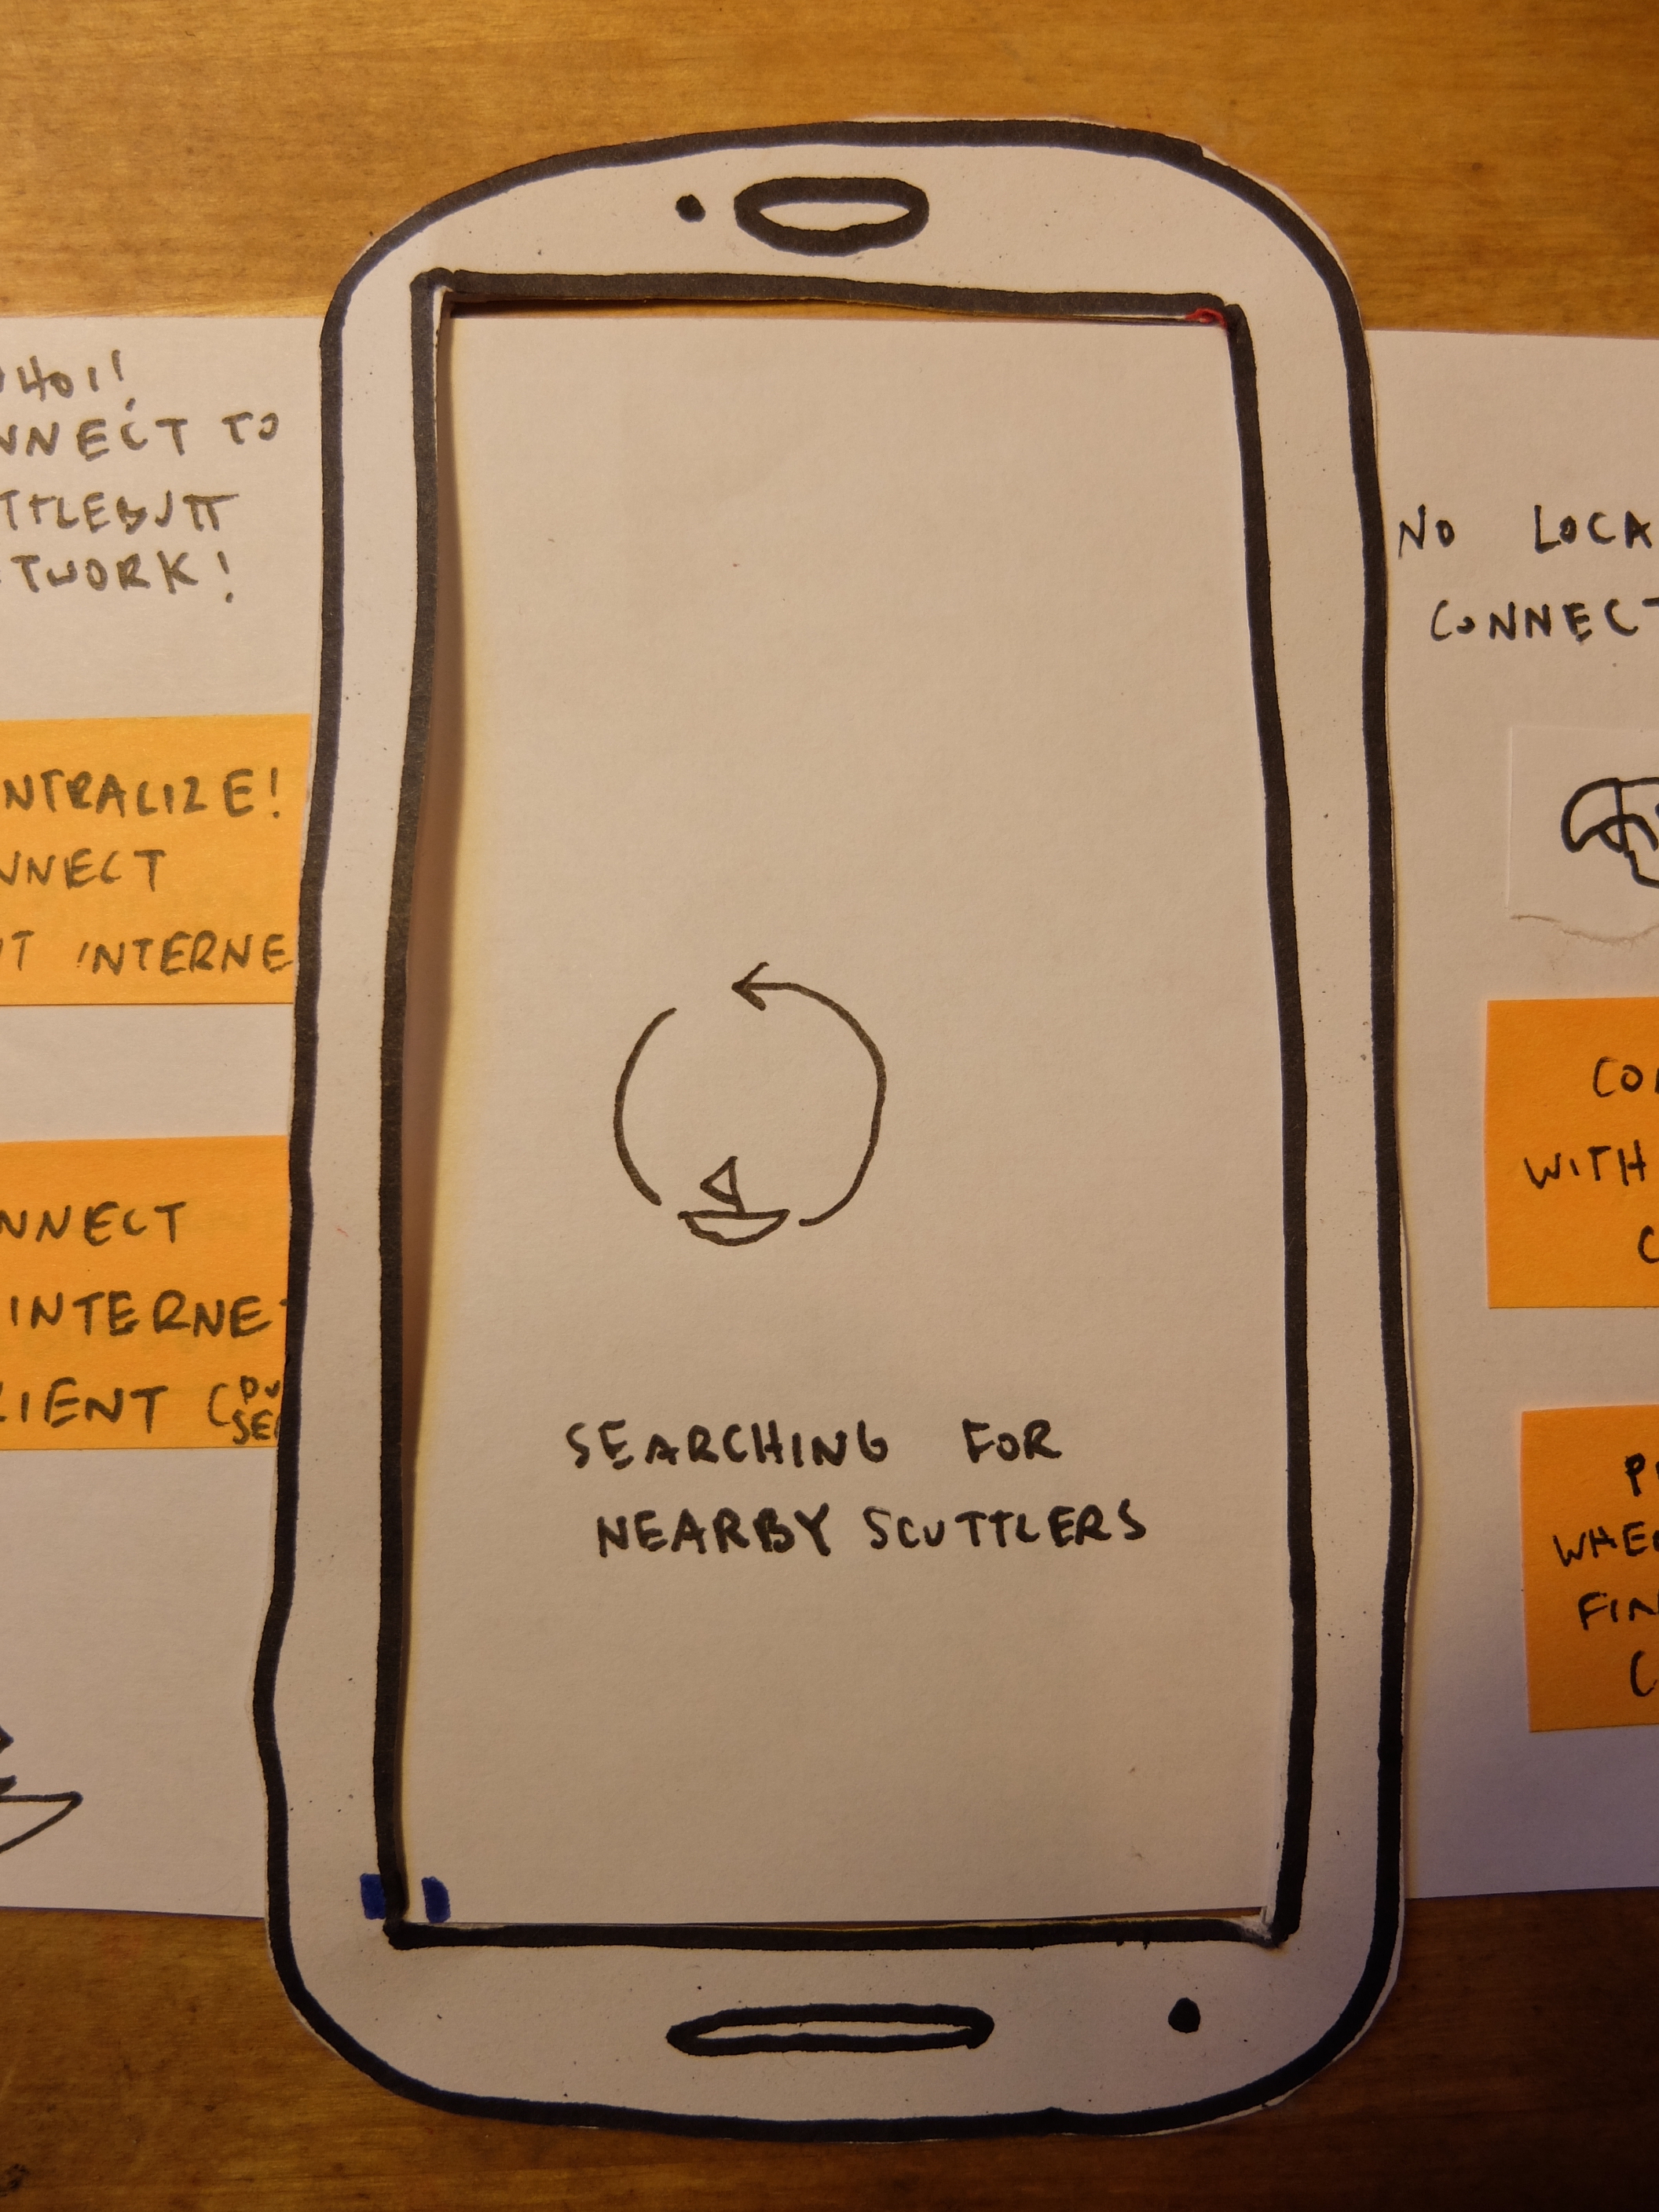 HOI!
NNECT TO
TTLEBUTT
TWORK!
NTRALIZE!
NNECT
T INTERNE
NNECT
INTERNE
IENT
SEARCHING FOR
NEARBY SCUTTLERS
NO LOCA
CONNECT
CO
WITH
C
P
WHE
FIN
C